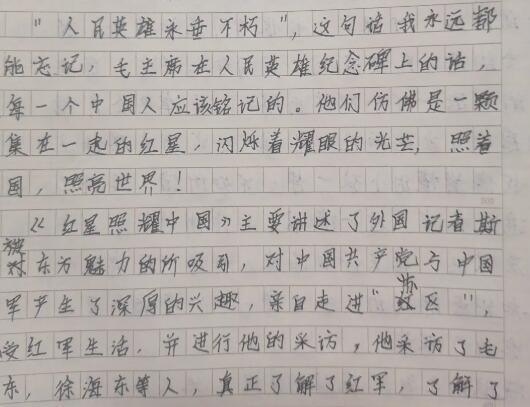 "人民英雄永垂不朽",这句话我永远都
能忘记,毛主席在人民英雄纪念碑上的话,
每一个中国人应该铭记的。他们仿佛是一颗
集在一起的红星,闪烁着耀眼的光芒,照着
国,照亮世界!
《红星照耀中国》主要讲述了外国记者斯
被东方魅力的所吸引,对中国共产党与中国
军产生了深厚的兴趣,亲自走进"区",
受红军生活,并进行他的采访,他采访了毛
东,徐海东等人,真正了解了红军,了解了